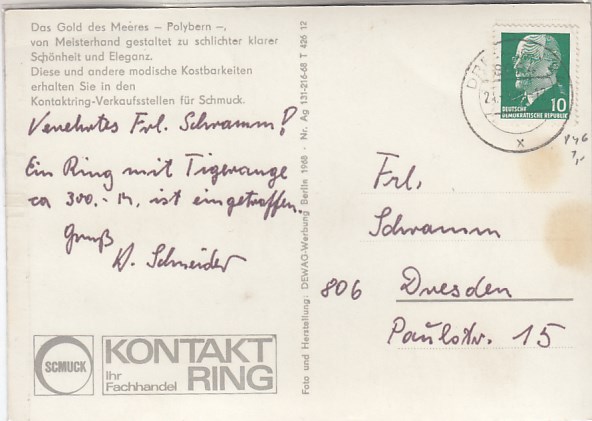 Das Gold des Meeres – Polybern –,
von Meisterhand gestaltet zu schlichter klarer
Schönheit und Eleganz.
Diese und andere modische Kostbarkeiten
erhalten Sie in den
Kontaktring-Verkaufsstellen für Schmuck.
Verehrtes Frl. Schramm!
Ein Ring mit Tigerauge
ca 300.- M. ist eingetroffen.
Gruß
W. Schneider
SCMUCK
KONTAKT
Ihr
Fachhandel
RING
Foto und Herstellung: DEWAG-Werbung Berlin 1968 · Nr. Ag 131-216-68 T 426 12
10
DEUTSCHE
DEMOKRATISCHE REPUBLIK
x
Frl.
Schramm
806 Dresden
Paulstr. 15